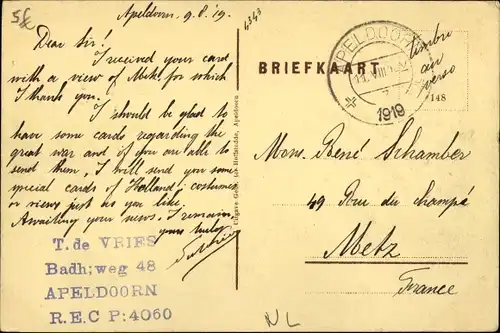 5£
Apeldoorn, 9.8.19.
4343
Dear Sir!
I received your card
with a view of Metz for which
I thank you.
I should be glad to
have some cards regarding the
great war and if you are able to
send them, I will send you some
special cards of Holland; costumes
or views just as you like.
Awaiting your news, I remain
yours truly
T. de VRIES
Badh;weg 48
APELDOORN
R.E.C P:4060
BRIEFKAART
APELDOORN
1919
timbre
au
verso
148
Mons. René Schamber
49 Rue du champé
Metz
France
NL